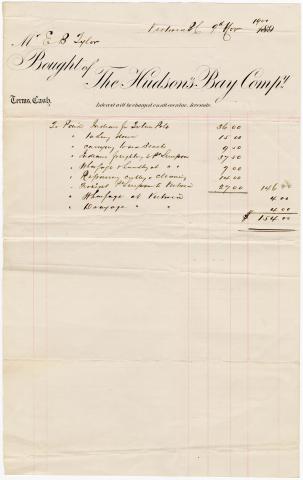 1900
Victoria BC 9th Nov 188
Mr E B Tylor
Bought of The Hudson's Bay Compy.
Terms Cash. Interest will be charged on all overdue Accounts.
To Paid Indians for Totem Pole 36 00
" taking down 15 00
" carrying to 9 50
" Indians freighting to Pt Simpson 37 50
" Wharfage & handling at " " 9 00
" Repairing & cleaning 14 00
" Freight Pt Simpson to Victoria 27 00 146
" Wharfage at Victoria 4 00
" " " 4 00
$ 154.00